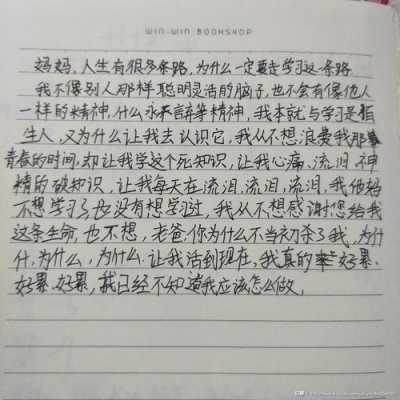 WIN-WIN BOOKSHOP
妈妈,人生有很多条路,为什么一定要走学习这一条路
我不像别人那样聪明灵活的脑子,也不会有像他人
一样的精神,什么永不言弃等精神,我本就与学习是陌
生人,又为什么让我去认识它,我从不想浪费我那
青春的时间,却让我学这个死知识,让我心痛、流泪、神
精的破知识,让我每天在流泪,流泪,流泪,我他妈
不想学习了,也没有想学习过,我从不想感谢您给我
这条生命,也不想,老爸你为什么不当初杀了我,为什
什,为什么,为什么.让我活到现在,我真的好累、
好累、好累,我已经不知道我应该怎么做,